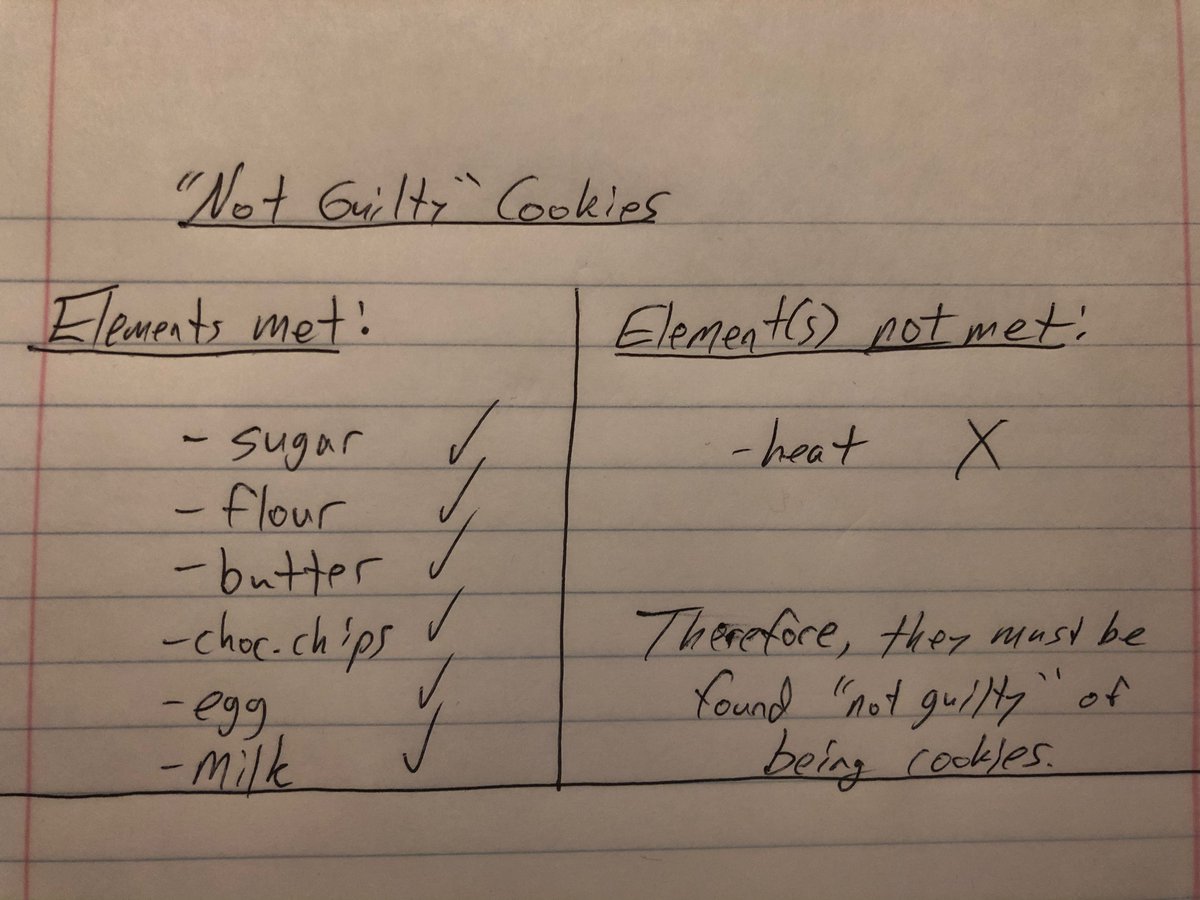 "Not Guilty" Cookies
Elements met:
- sugar ✓
- flour ✓
- butter ✓
- choc. chips ✓
- egg ✓
- milk ✓
Element(s) not met:
- heat X
Therefore, they must be
found "not guilty" of
being cookies.